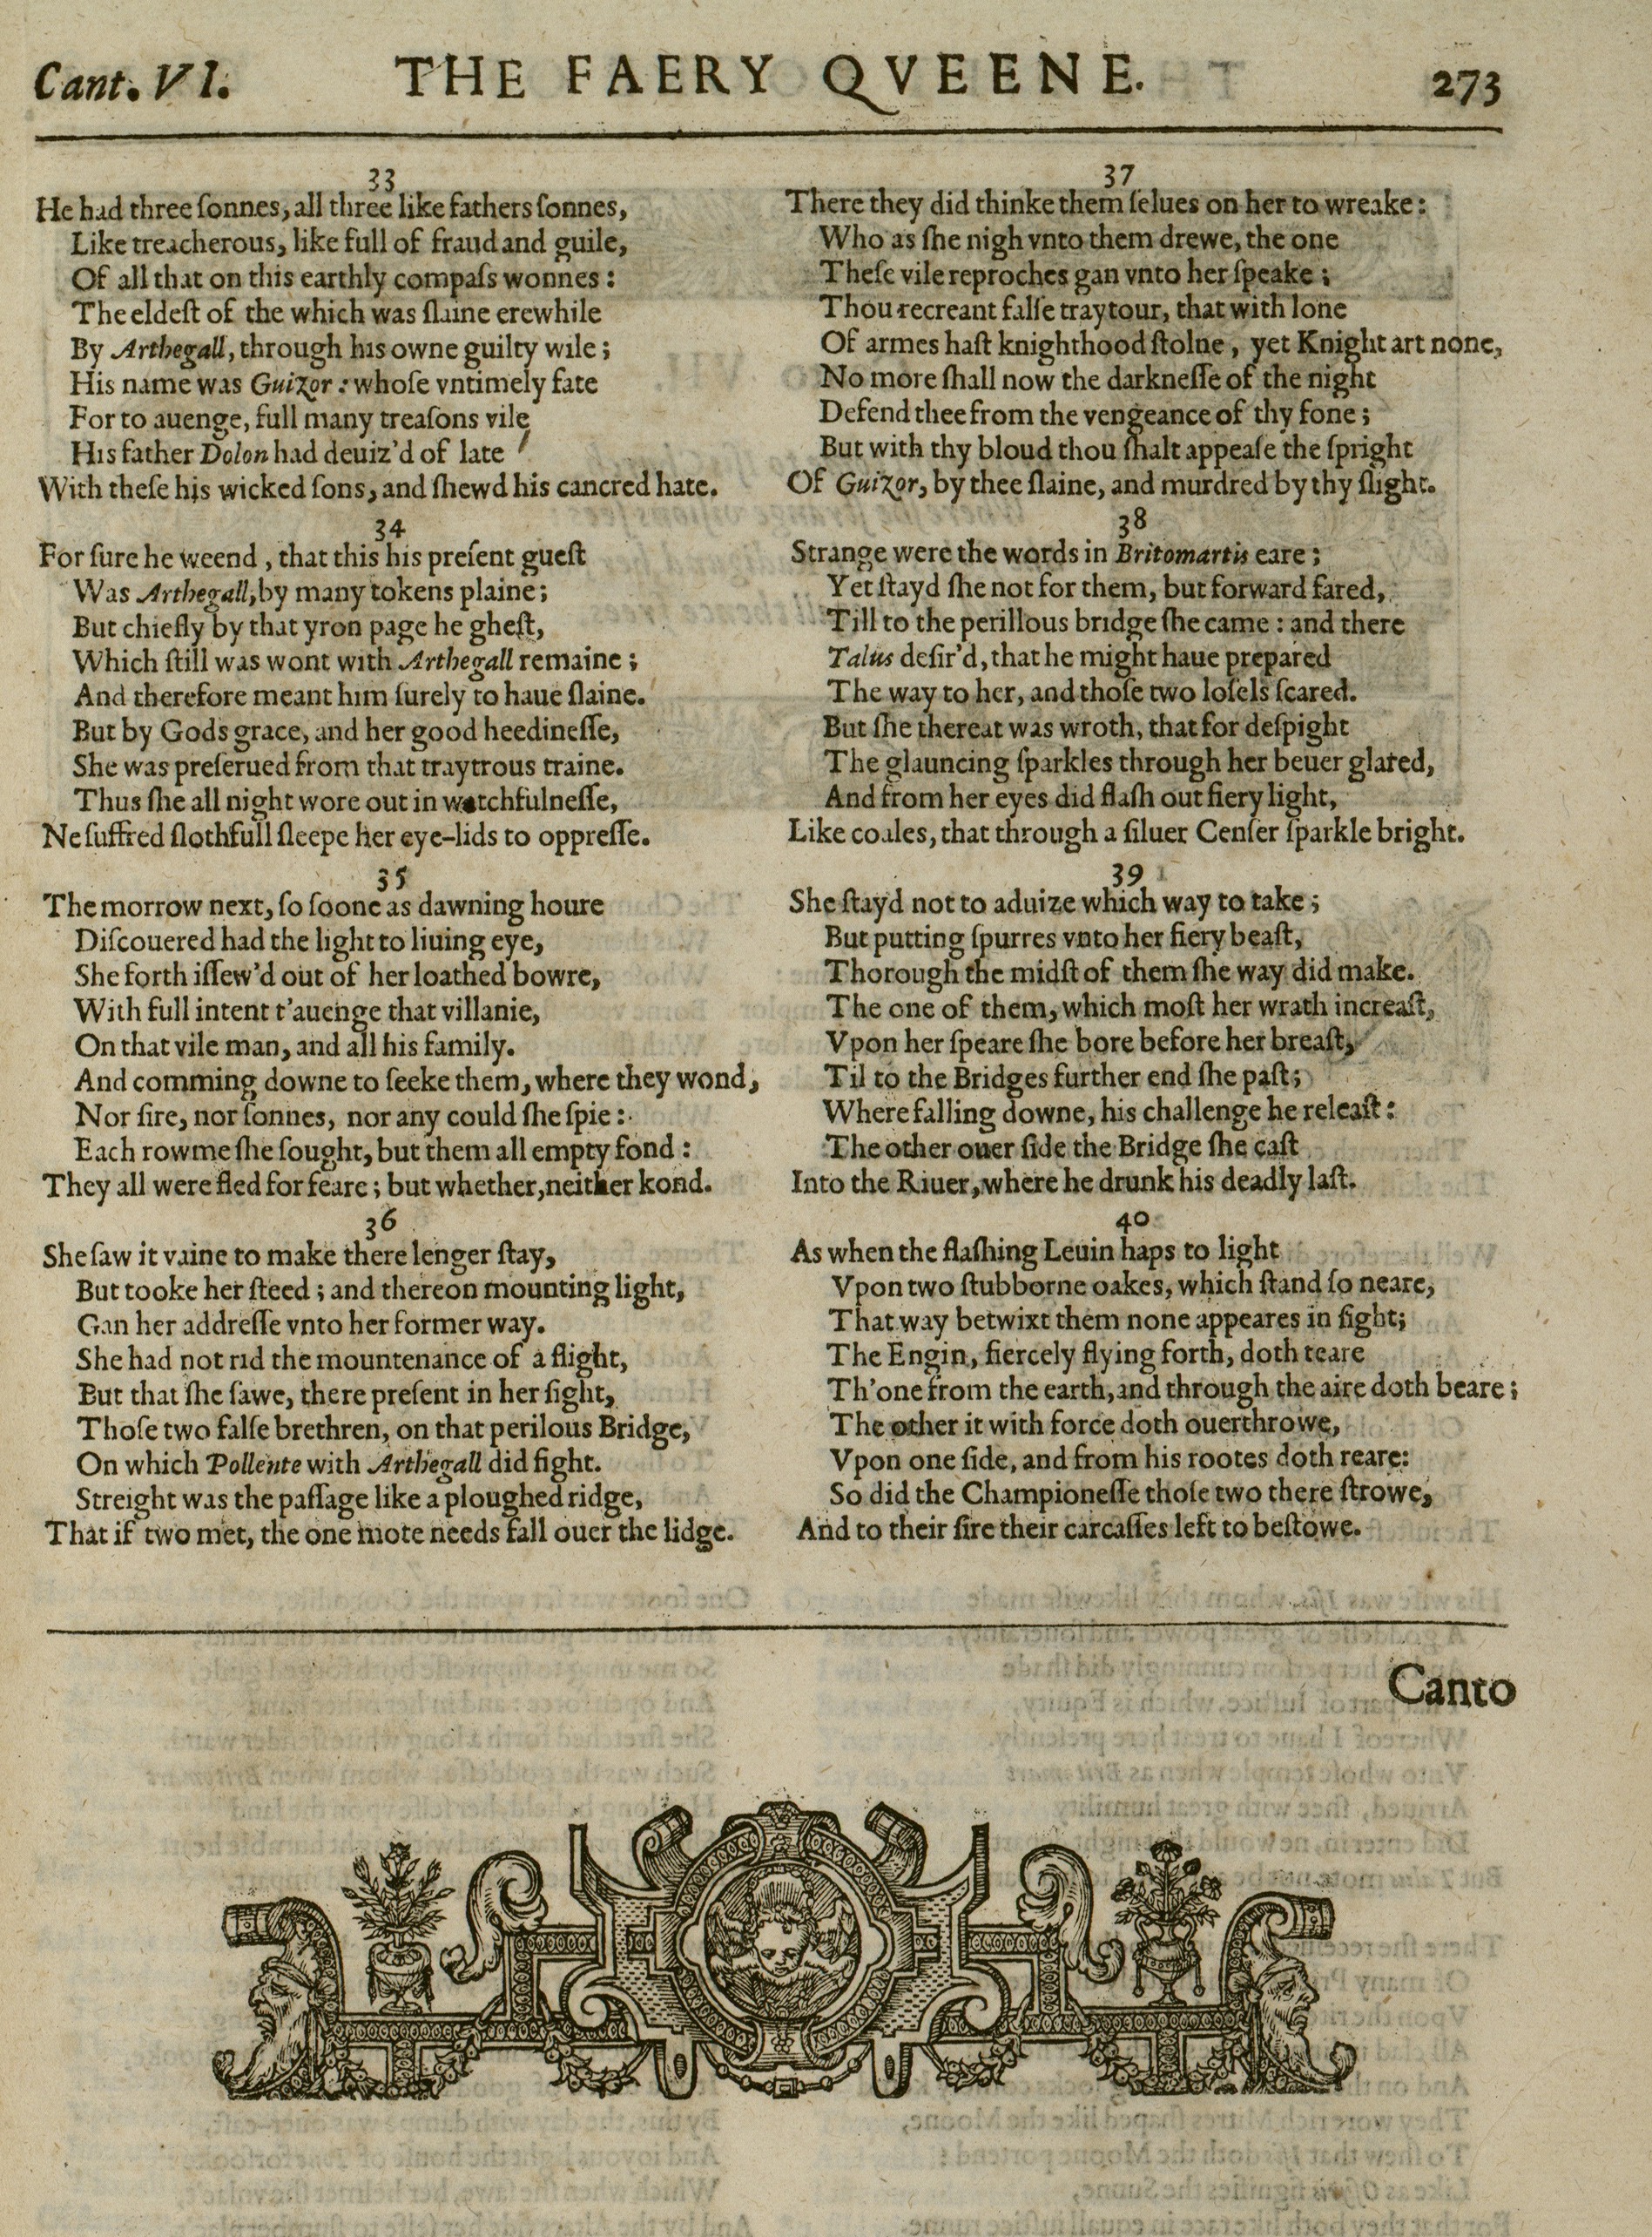 Cant. VI. THE FAERY QVEENE. 273
33
He had three ſonnes, all three like fathers ſonnes,
Like treacherous, like full of fraud and guile,
Of all that on this earthly compaſs wonnes :
The eldeſt of the which was ſlaine erewhile
By Arthegall, through his owne guilty wile ;
His name was Guizor : whoſe vntimely fate
For to auenge, full many treaſons vile
His father Dolon had deuiz'd of late
With theſe his wicked ſons, and ſhewd his cancred hate.
34
For ſure he weend , that this his preſent gueſt
Was Arthegall, by many tokens plaine ;
But chiefly by that yron page he gheſt,
Which ſtill was wont with Arthegall remaine ;
And therefore meant him ſurely to haue ſlaine.
But by Gods grace, and her good heedineſſe,
She was preſerued from that traytrous traine.
Thus ſhe all night wore out in watchfulneſſe,
Ne ſuffred ſlothfull ſleepe her eye-lids to oppreſſe.
35
The morrow next, ſo ſoone as dawning houre
Diſcouered had the light to liuing eye,
She forth iſſew'd out of her loathed bowre,
With full intent t'auenge that villanie,
On that vile man, and all his family.
And comming downe to ſeeke them, where they wond,
Nor ſire, nor ſonnes, nor any could ſhe ſpie :
Each rowme ſhe ſought, but them all empty fond :
They all were fled for feare ; but whether, neither kond.
36
She ſaw it vaine to make there lenger ſtay,
But tooke her ſteed ; and thereon mounting light,
Gan her addreſſe vnto her former way.
She had not rid the mountenance of a flight,
But that ſhe ſawe, there preſent in her ſight,
Thoſe two falſe brethren, on that perilous Bridge,
On which Pollente with Arthegall did fight.
Streight was the paſſage like a ploughed ridge,
That if two met, the one mote needs fall ouer the lidge.
37
There they did thinke them ſelues on her to wreake :
Who as ſhe nigh vnto them drewe, the one
Theſe vile reproches gan vnto her ſpeake ;
Thou recreant falſe traytour, that with lone
Of armes haſt knighthood ſtolne , yet Knight art none,
No more ſhall now the darkneſſe of the night
Defend thee from the vengeance of thy fone ;
But with thy bloud thou ſhalt appeaſe the ſpright
Of Guizor, by thee ſlaine, and murdred by thy ſlight.
38
Strange were the words in Britomartis eare ;
Yet ſtayd ſhe not for them, but forward fared,
Till to the perillous bridge ſhe came : and there
Talus deſir'd, that he might haue prepared
The way to her, and thoſe two loſels ſcared.
But ſhe thereat was wroth, that for deſpight
The glauncing ſparkles through her beuer glared,
And from her eyes did flaſh out fiery light,
Like coales, that through a ſiluer Cenſer ſparkle bright.
39
She ſtayd not to aduize which way to take ;
But putting ſpurres vnto her fiery beaſt,
Thorough the midſt of them ſhe way did make.
The one of them, which moſt her wrath increaſt,
Vpon her ſpeare ſhe bore before her breaſt,
Til to the Bridges further end ſhe paſt ;
Where falling downe, his challenge he releaſt :
The other ouer ſide the Bridge ſhe caſt
Into the Riuer, where he drunk his deadly laſt.
40
As when the flaſhing Leuin haps to light
Vpon two ſtubborne oakes, which ſtand ſo neare,
That way betwixt them none appeares in ſight ;
The Engin, fiercely flying forth, doth teare
Th'one from the earth, and through the aire doth beare ;
The other it with force doth ouerthrowe,
Vpon one ſide, and from his rootes doth reare :
So did the Championeſſe thoſe two there ſtrowe,
And to their ſire their carcaſſes left to beſtowe.
Canto